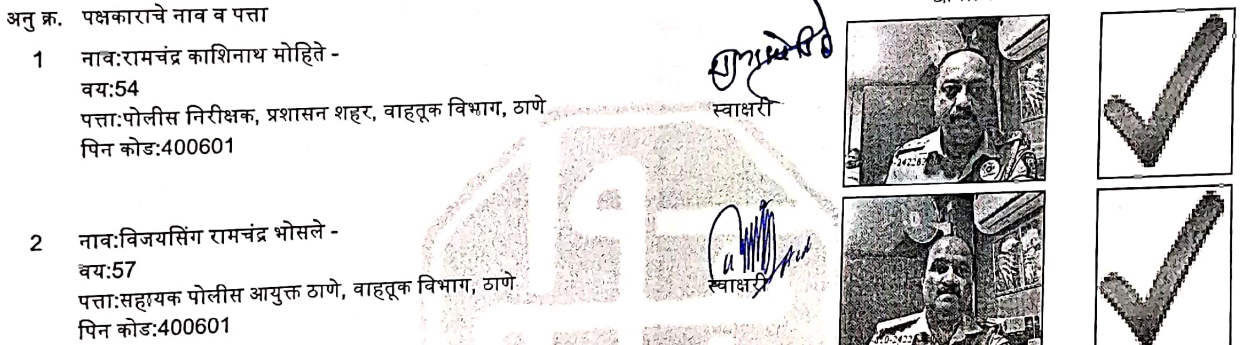 अनु क्र. पक्षकाराचे नाव व पत्ता
1 नाव:रामचंद्र काशिनाथ मोहिते -
वय:54
पत्ता:पोलीस निरीक्षक, प्रशासन शहर, वाहतूक विभाग, ठाणे
पिन कोड:400601
स्वाक्षरी
2 नाव:विजयसिंग रामचंद्र भोसले -
वय:57
पत्ता:सहायक पोलीस आयुक्त ठाणे, वाहतूक विभाग, ठाणे
पिन कोड:400601
स्वाक्षरी